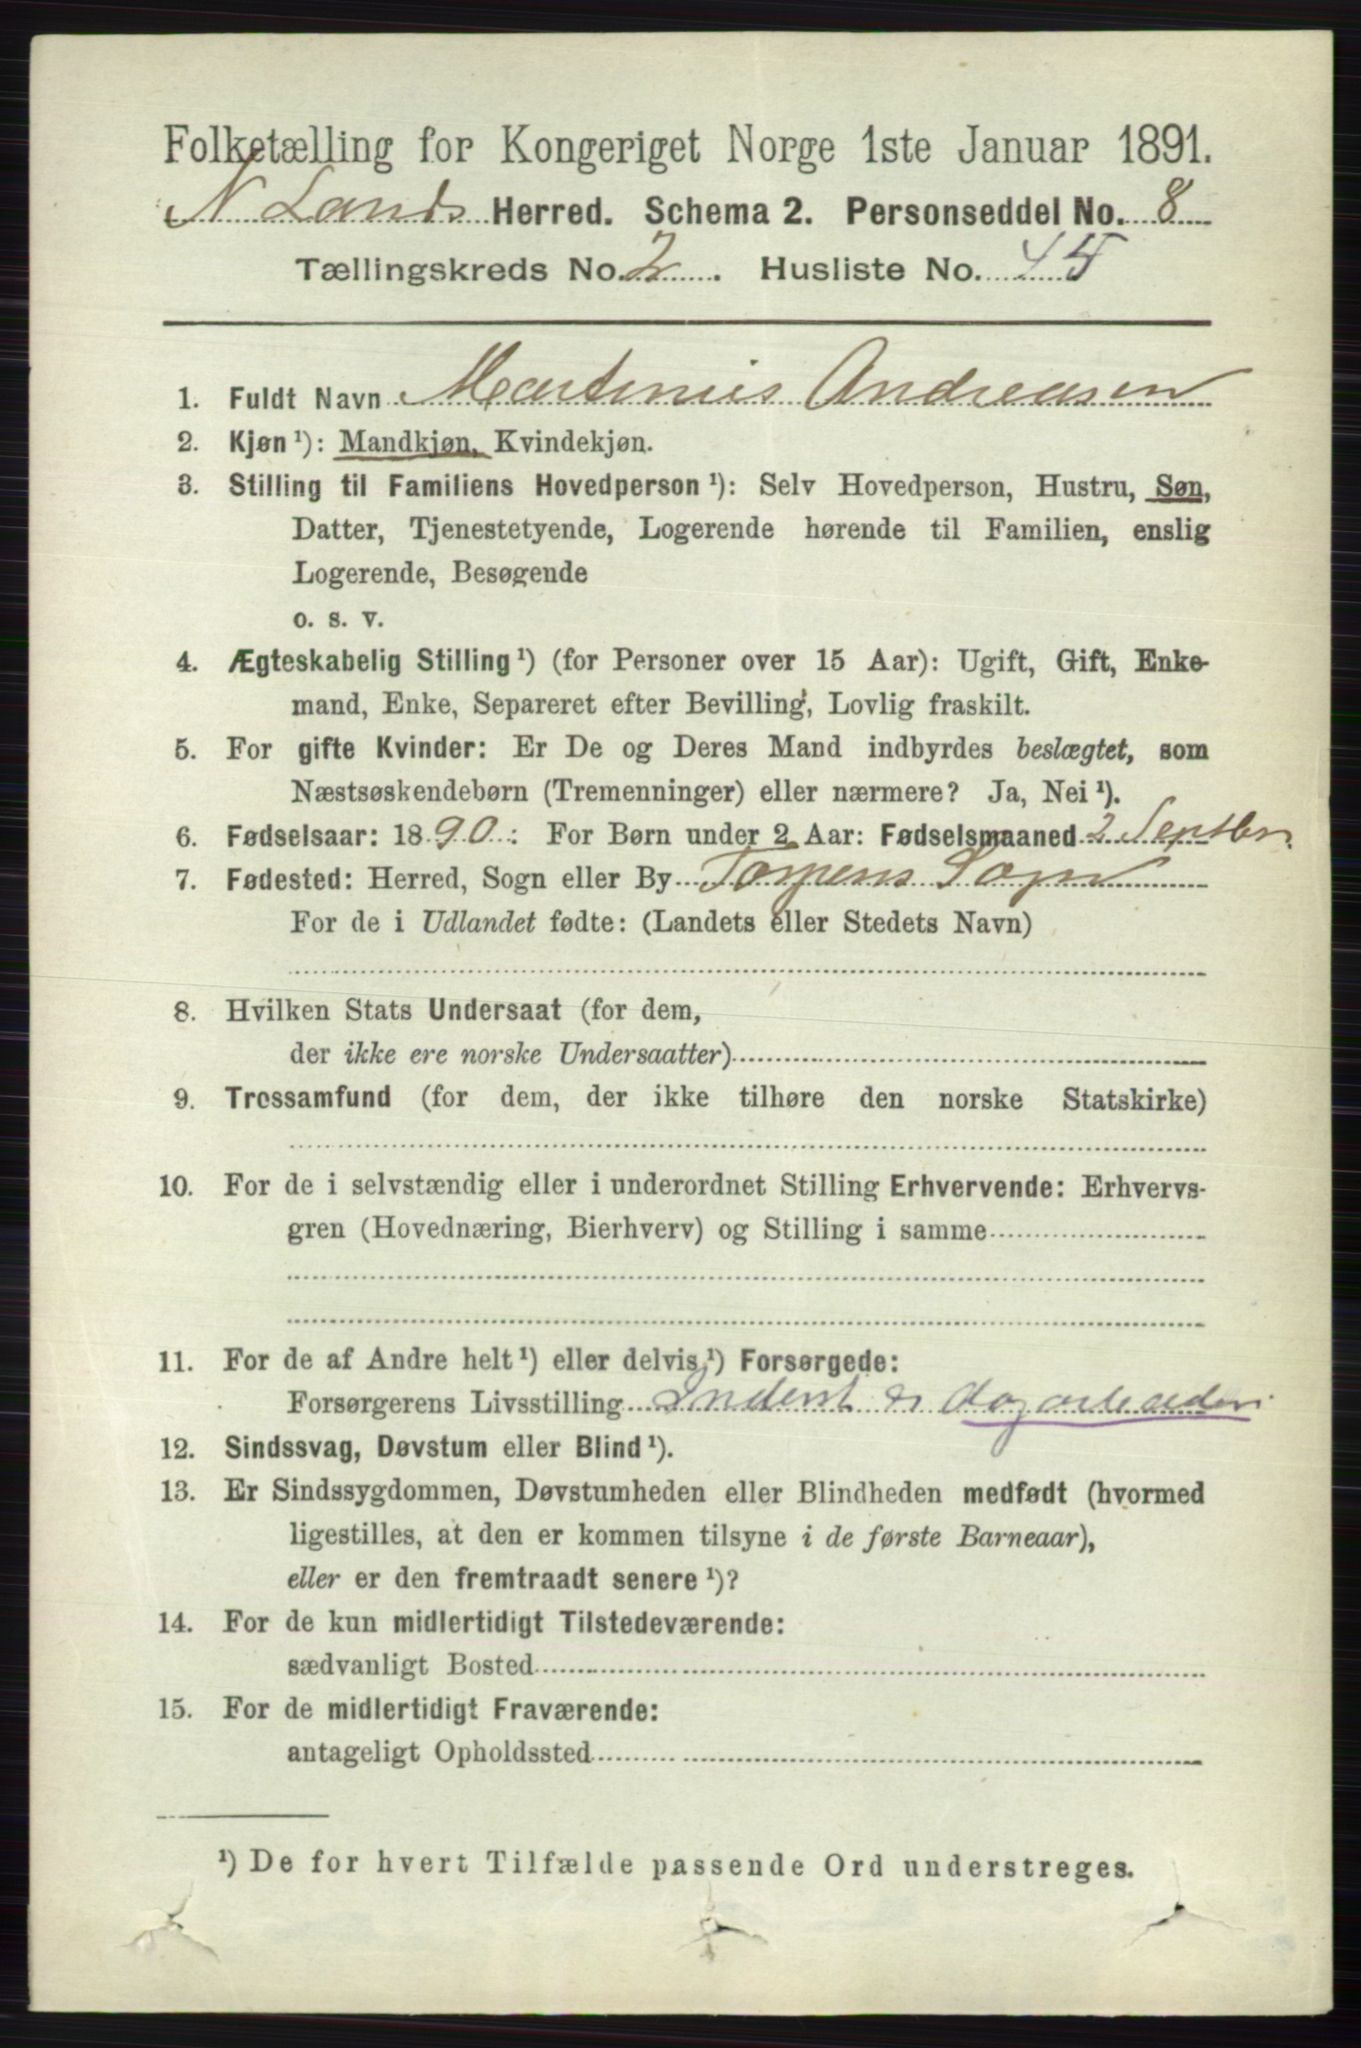 Folketælling for Kongeriget Norge 1ste Januar 1891.
N Lands Herred. Schema 2. Personseddel No. 8
Tællingskreds No. 2. Husliste No. 45
1. Fuldt Navn Martinius Andreasen
2. Kjøn ¹): Mandkjøn, Kvindekjøn.
3. Stilling til Familiens Hovedperson ¹): Selv Hovedperson, Hustru, Søn,
Datter, Tjenestetyende, Logerende hørende til Familien, enslig
Logerende, Besøgende
o. s. v.
4. Ægteskabelig Stilling ¹) (for Personer over 15 Aar): Ugift, Gift, Enke-
mand, Enke, Separeret efter Bevilling, Lovlig fraskilt.
5. For gifte Kvinder: Er De og Deres Mand indbyrdes beslægtet, som
Næstsøskendebørn (Tremenninger) eller nærmere? Ja, Nei ¹).
6. Fødselsaar: 1890: For Børn under 2 Aar: Fødselsmaaned 2 Septbr.
7. Fødested: Herred, Sogn eller By Torpens Sogn
For de i Udlandet fødte: (Landets eller Stedets Navn)
8. Hvilken Stats Undersaat (for dem,
der ikke ere norske Undersaatter)
9. Trossamfund (for dem, der ikke tilhøre den norske Statskirke)
10. For de i selvstændig eller i underordnet Stilling Erhvervende: Erhvervs-
gren (Hovednæring, Bierhverv) og Stilling i samme
11. For de af Andre helt ¹) eller delvis ¹) Forsørgede:
Forsørgerens Livsstilling Inderst & dagarbeider.
12. Sindssvag, Døvstum eller Blind ¹).
13. Er Sindssygdommen, Døvstumheden eller Blindheden medfødt (hvormed
ligestilles, at den er kommen tilsyne i de første Barneaar),
eller er den fremtraadt senere ¹)?
14. For de kun midlertidigt Tilstedeværende:
sædvanligt Bosted
15. For de midlertidigt Fraværende:
antageligt Opholdssted
¹) De for hvert Tilfælde passende Ord understreges.